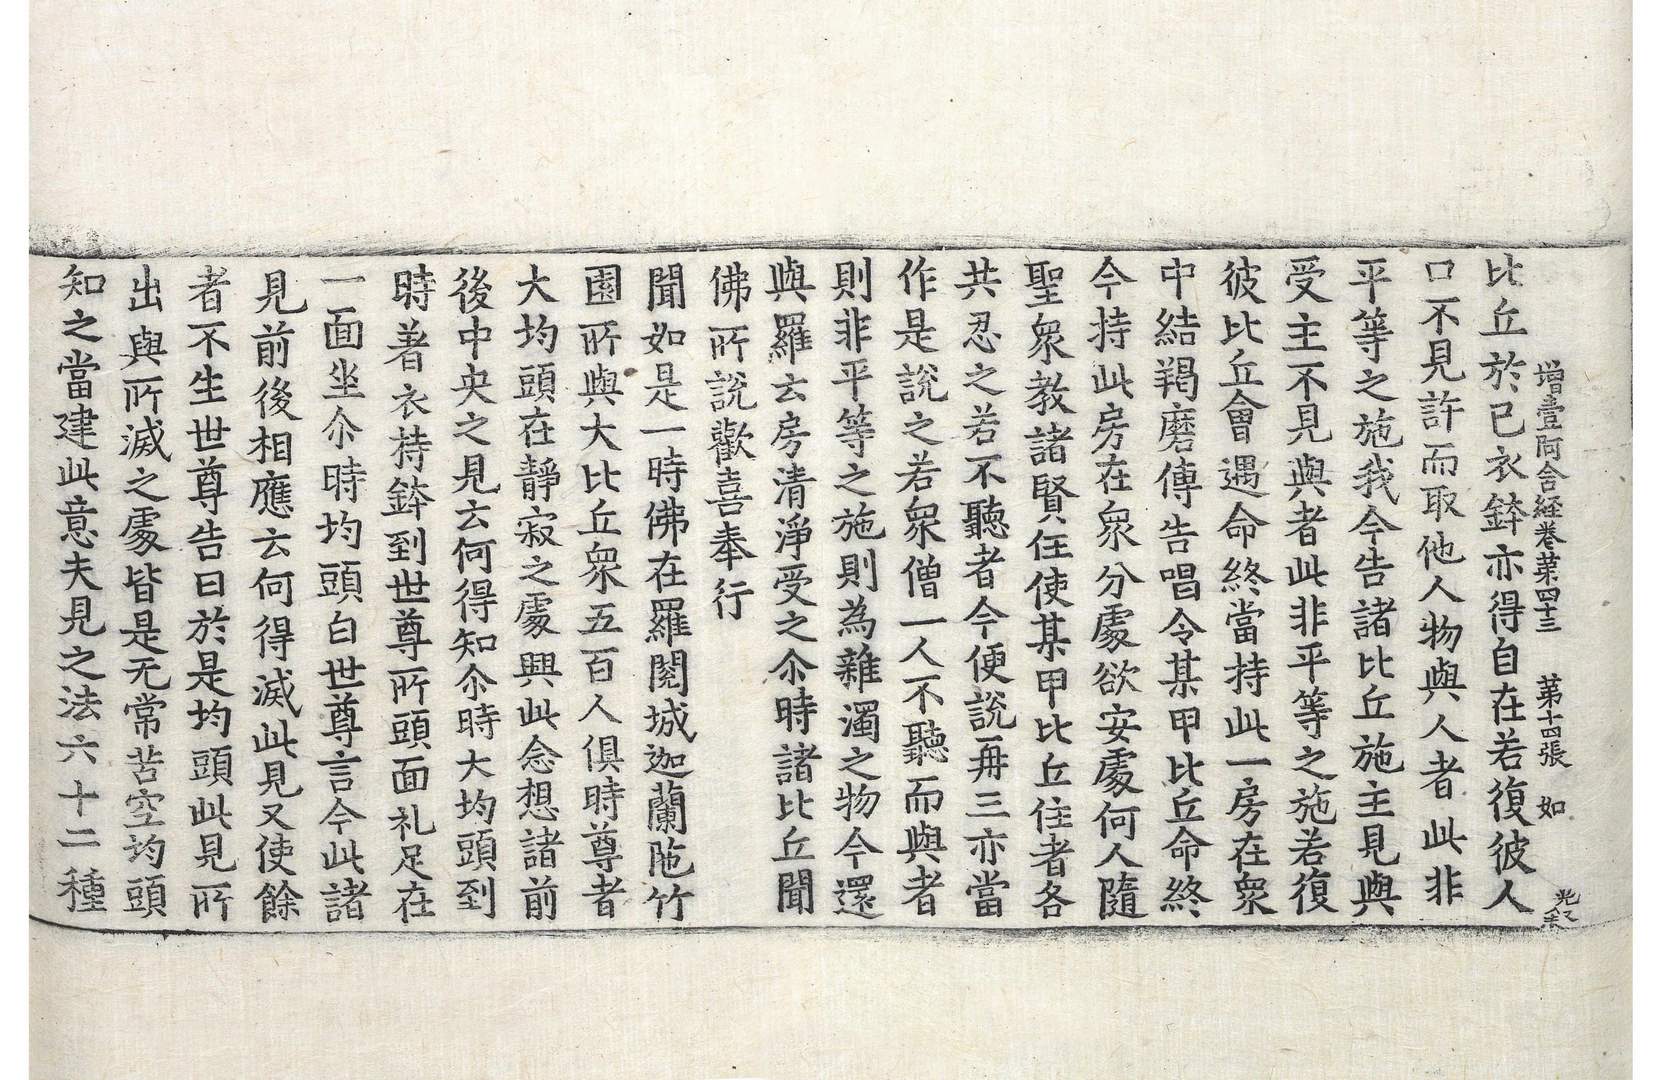 增壹阿含経卷第四十三　第十四張　如
比丘於已衣鉢亦得自在若復彼人
口不見許而取他人物與人者此非
平等之施我今告諸比丘施主見與
受主不見與者此非平等之施若復
彼比丘會遇命終當持此一房在衆
中結羯磨傳告唱令某甲比丘命終
今持此房在衆分處欲安處何人隨
聖衆教諸賢任使某甲比丘住者各
共忍之若不聽者今便說再三亦當
作是說之若衆僧一人不聽而與者
則非平等之施則為雜濁之物今還
與羅云房清淨受之尒時諸比丘聞
佛所說歡喜奉行
聞如是一時佛在羅閱城迦蘭陁竹
園所與大比丘衆五百人俱時尊者
大均頭在靜寂之處興此念想諸前
後中央之見云何得知尒時大均頭到
時著衣持鉢到世尊所頭面礼足在
一面坐尒時均頭白世尊言今此諸
見前後相應云何得滅此見又使餘
者不生世尊告曰於是均頭此見所
出與所滅之處皆是无常苦空均頭
知之當建此意夫見之法六十二種